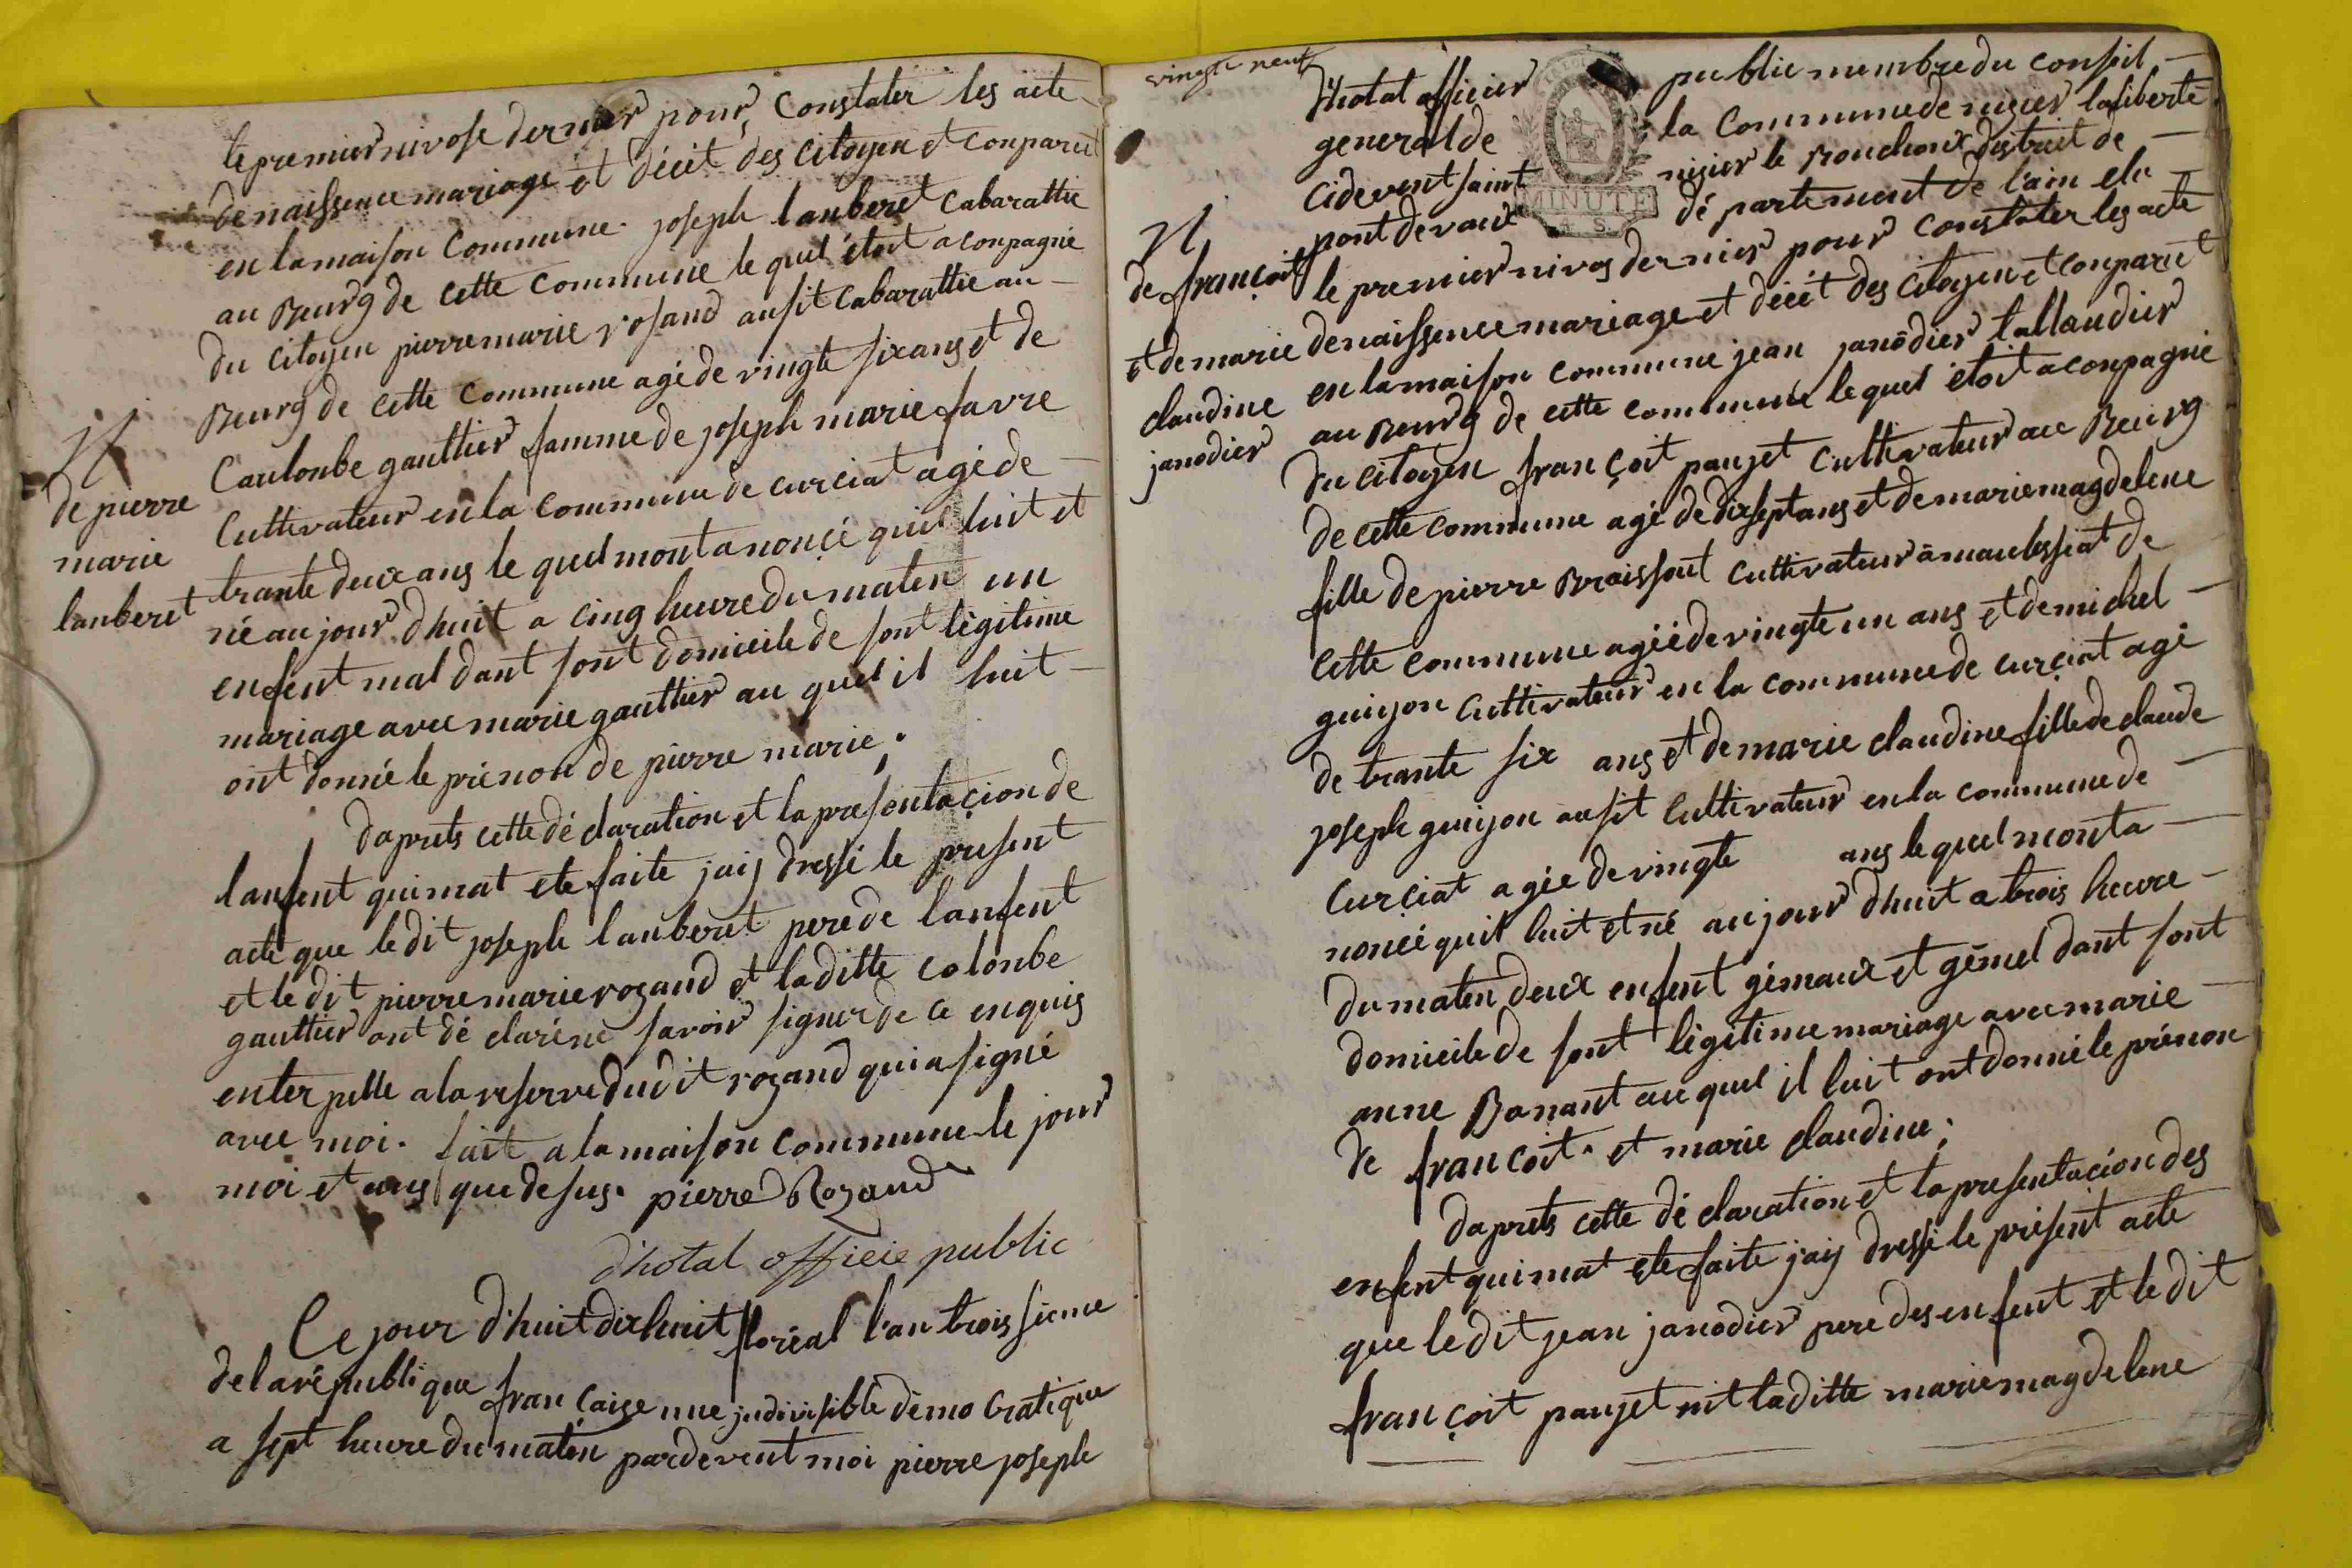 le premier nivose dernier pour, Constater les acte
de naissence mariage et décét des citoyen et conparut
en la maison Commune. joseph lauberet Cabarattie
au Bourg de cette Commune le quel étoit aconpagné
du citoyen pierre marie rosand ausit cabarattie au
Bourg de cette Commune agé de vingte six ans et de
Caulonbe gauttier famme de joseph marie favre
Cultivateur en la commune de curciat agé de
trante deux ans le quel mont anoncé quil luit et
né au jour d'huit a cinq heure du maten un
enfent mal dant sont domicile de sont légitime
mariage avec marie gauttier au quel il luit
ont donné le prénon de pierre marie;
N
de pierre
marie
lauberet
daprets cette dé claration et la présentaçion de
lanfent qui mat ete faite jaij dressé le present
acte que le dit joseph lauberet pere de lanfent
et le dit pierre marie rozand et laditte colonbe
gauttier ont dé claréne savoir signer de ce enquis
enterpelle a la reserve dudit rozand qui a signé
avec moi. fait a la maison commune le jour
moi et ans que desus. pierre Rozand
d'hotal officie public
Ce jour d'huit dix huit floréal l'an trois sieme
de la république française une jndivisible démocratique
a sept heure du maten pardevent moi pierre joseph
vingte neuf
d'hotal officier public membre du conseil
general de la Commune de nizier la liberté
cidevent saint nizier le Bouchoux district de
pont devaux dé partement de l'ain elu
le premier nivos dernier pour constater les acte
de naissence mariage et décét des citoyen et conparut
en la maison commune jean janôdier tallandier
au Bourg de cette commune le quel étoit aconpagné
du citoyen françoit paujet cultivateur au Bourg
de cette commune agé de dix sept ans et de marie magdelene
fille de pierre Braissout cultivateur à maulessiat de
cette commune agéé de vingte un ans et de michel
guiyon cultivateur en la commune de curçiat agé
de trante six ans et de marie claudine fille de claude
joseph guiyon ausit cultivateur en la commune de
Curçiat agée de vingte ans le quel mont a
noncé quil luit et né au jour d'huit a trois heure
du maten deux enfent gémaux et gémel dant sont
domicile de sont légitime mariage avec marie
anne Bonant au quel il luit ont donné le prénon
de françoit. et marie claudine;
N
de françoit
et de marie
claudine
janodier
daprets cette dé claration et la presentacion des
enfent qui mat ete faite jaij dressé le présent acte
que le dit jean janodier pere des enfent et le dit
françoit paujet nit laditte marie magdelene
MINUTE
4 S.